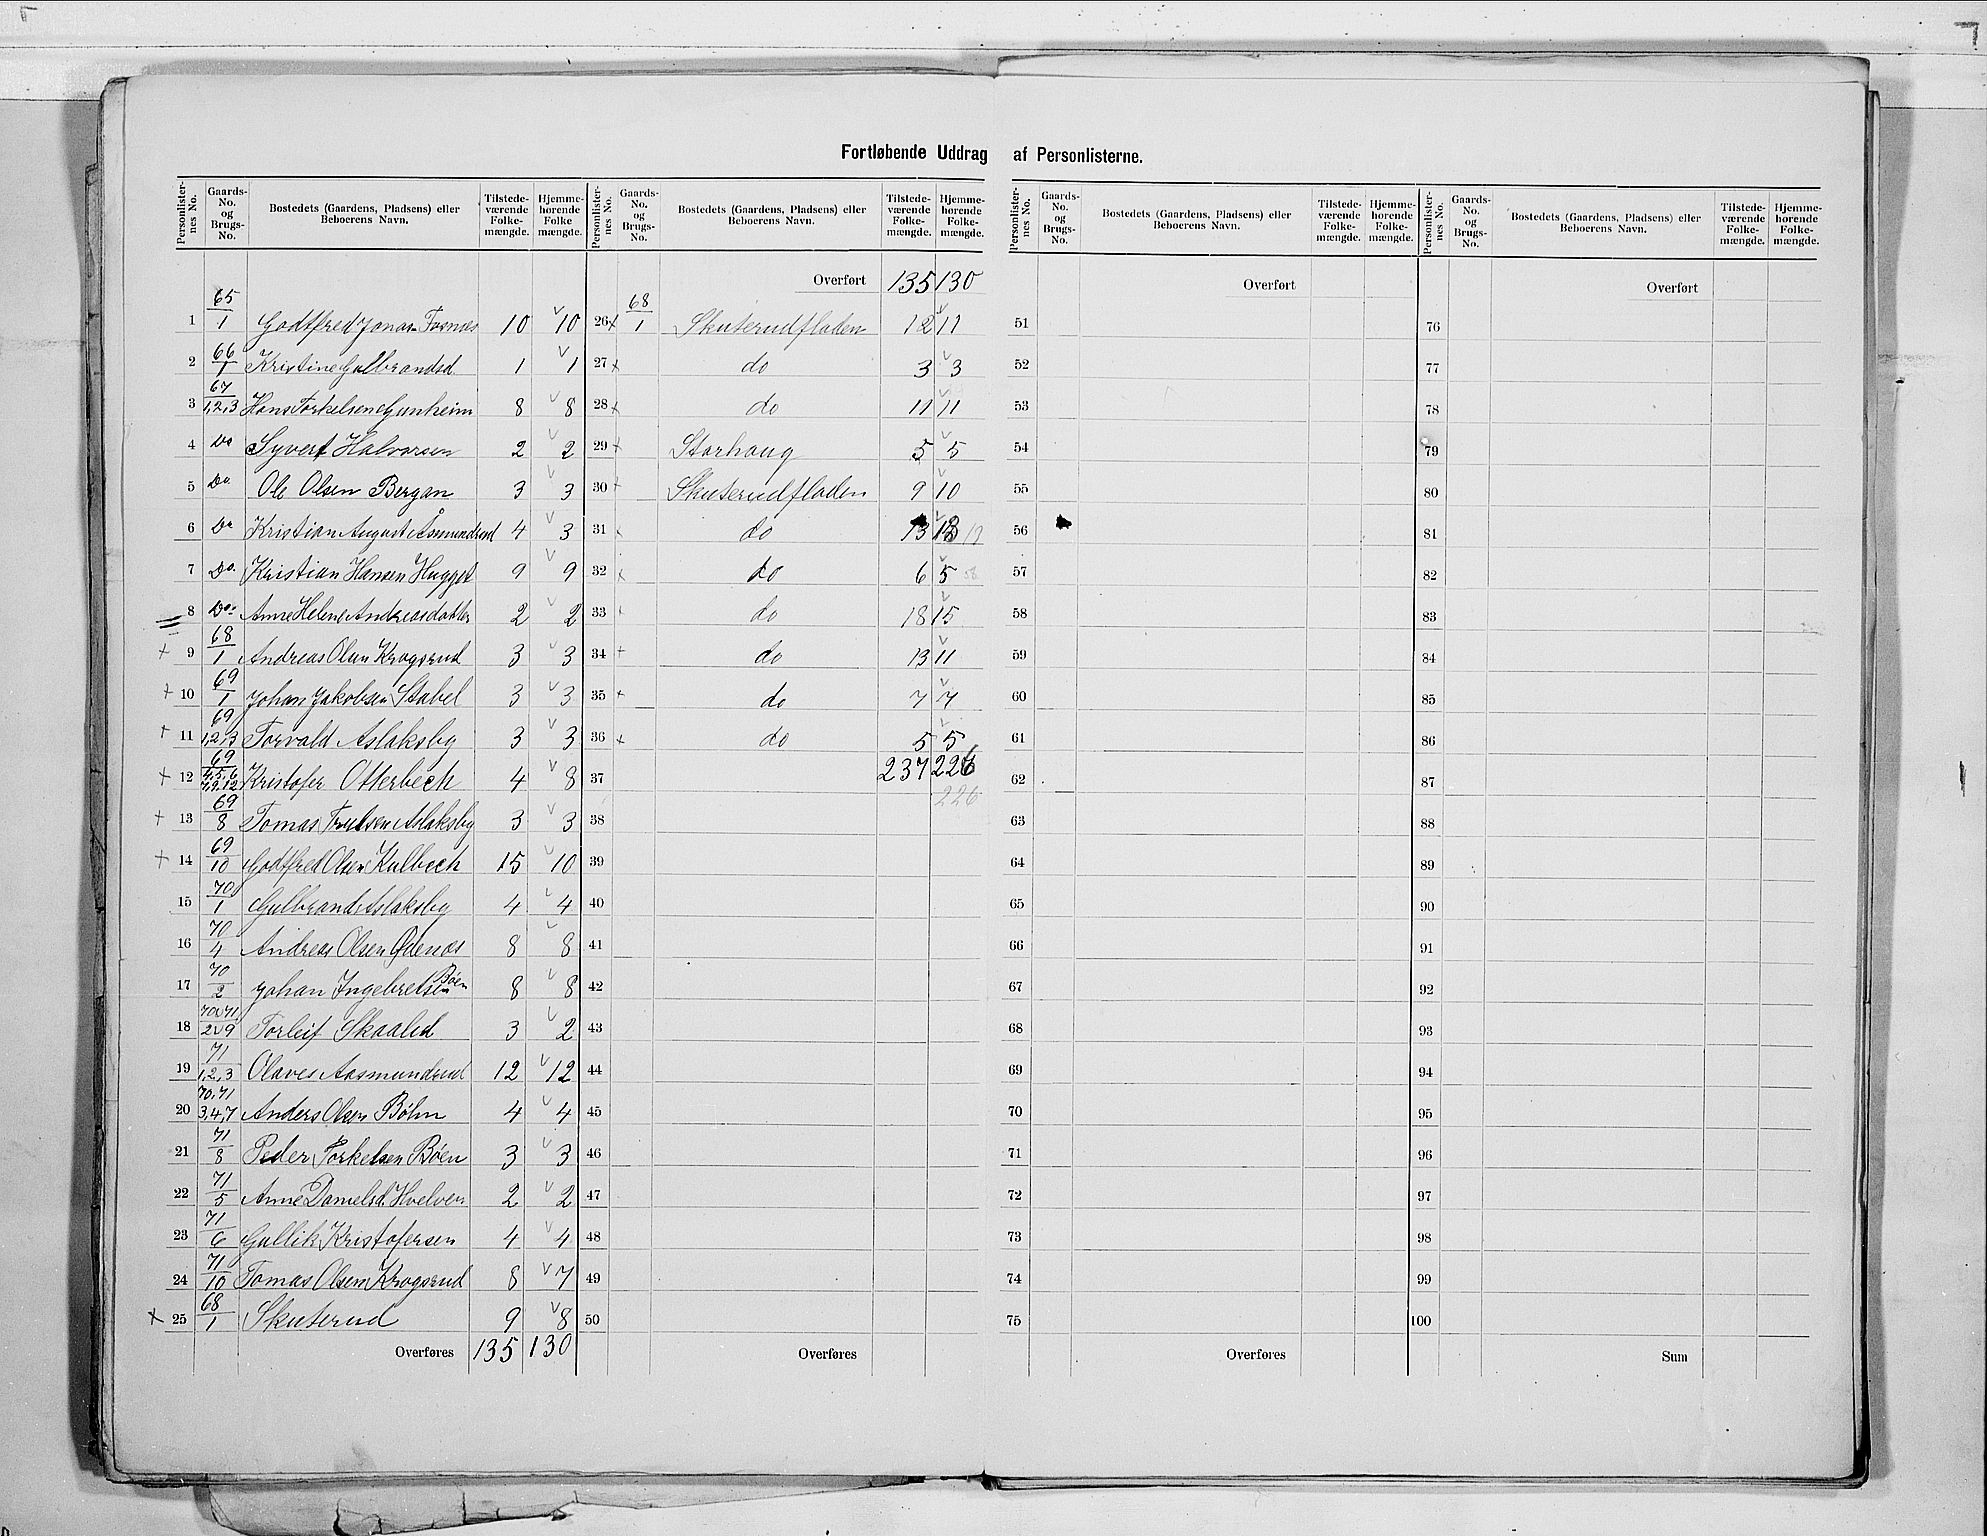 Fortløbende Uddrag af Personlisterne.
Personlisternes No. Gaards-No. og Brugs-No. Bostedets (Gaardens, Pladsens) eller Beboerens Navn. Tilstedeværende Folkemængde. Hjemmehørende Folkemængde.
1 65/1 Godtfred Jonas Fosnæs 10 10
2 66/1 Kristine Gulbrandsd. 1 1
3 67/1,2,3 Hans Torkelsen Gunheim 8 8
4 Do Syvert Halvorsen 2 2
5 Do Ole Olsen Bergan 3 3
6 Do Kristian August Åsmundsrud 4 3
7 Do. Kristian Hansen Hugget 9 9
8 Do: Anne Helene Andreasdatter 2 2
+ 9 68/1 Andreas Olsen Krogsrud 3 3
+ 10 69/1 Johan Jakobsen Stabel 3 3
+ 11 69/1,2,3 Torvald Aslaksby 3 3
+ 12 69/4,5,6 7,9,12 Kristofer Otterbech 4 8
+ 13 69/8 Tomas Trulsen Aslaksby 3 3
+ 14 69/10 Godtfred Olsen Kulbech 15 10
15 70/1 Gulbrand Aslaksby 4 4
16 70/4 Andreas Olsen Ødenæs 8 8
17 70/2 Johan Ingebretsen Bøen 8 8
18 70 v 71/2 v 9 Torleif Skaalid 3 2
19 71/1,2,3 Olaves Aasmundrud 12 12
20 70,71/3,4,7 Anders Olsen Bøhn 4 4
21 71/8 Peder Torkelsen Bøen 3 3
22 71/5 Anne Danielsd. Hvelven 2 2
23 71/6 Gullik Kristofersen 4 4
24 71/10 Tomas Olsen Krogsrud 8 7
x 25 68/1 Skuterud 9 8
Overføres 135 130
Personlisternes No. Gaards-No. og Brugs-No. Bostedets (Gaardens, Pladsens) eller Beboerens Navn. Tilstedeværende Folkemængde. Hjemmehørende Folkemængde.
Overført 135 130
26 x 68/1 Skuterudfladen 12 11
27 x do 3 3
28 x do 11 11
29 + Storhaug 5 5
30 + Skuterudfladen 9 10
31 x do 13
32 x do 6 5
33 + do 18 15
34 + do 13 11
35 + do 7 7
36 x do 5 5
37 237 226
226
38
39
40
41
42
43
44
45
46
47
48
49
50
Overføres
Personlisternes No. Gaards-No. og Brugs-No. Bostedets (Gaardens, Pladsens) eller Beboerens Navn. Tilstedeværende Folkemængde. Hjemmehørende Folkemængde.
Overført
51
52
53
54
55
56
57
58
59
60
61
62
63
64
65
66
67
68
69
70
71
72
73
74
75
Overføres
Personlisternes No. Gaards-No. og Brugs-No. Bostedets (Gaardens, Pladsens) eller Beboerens Navn. Tilstedeværende Folkemængde. Hjemmehørende Folkemængde.
Overført
76
77
78
79
80
81
82
83
84
85
86
87
88
89
90
91
92
93
94
95
96
97
98
99
100
Sum